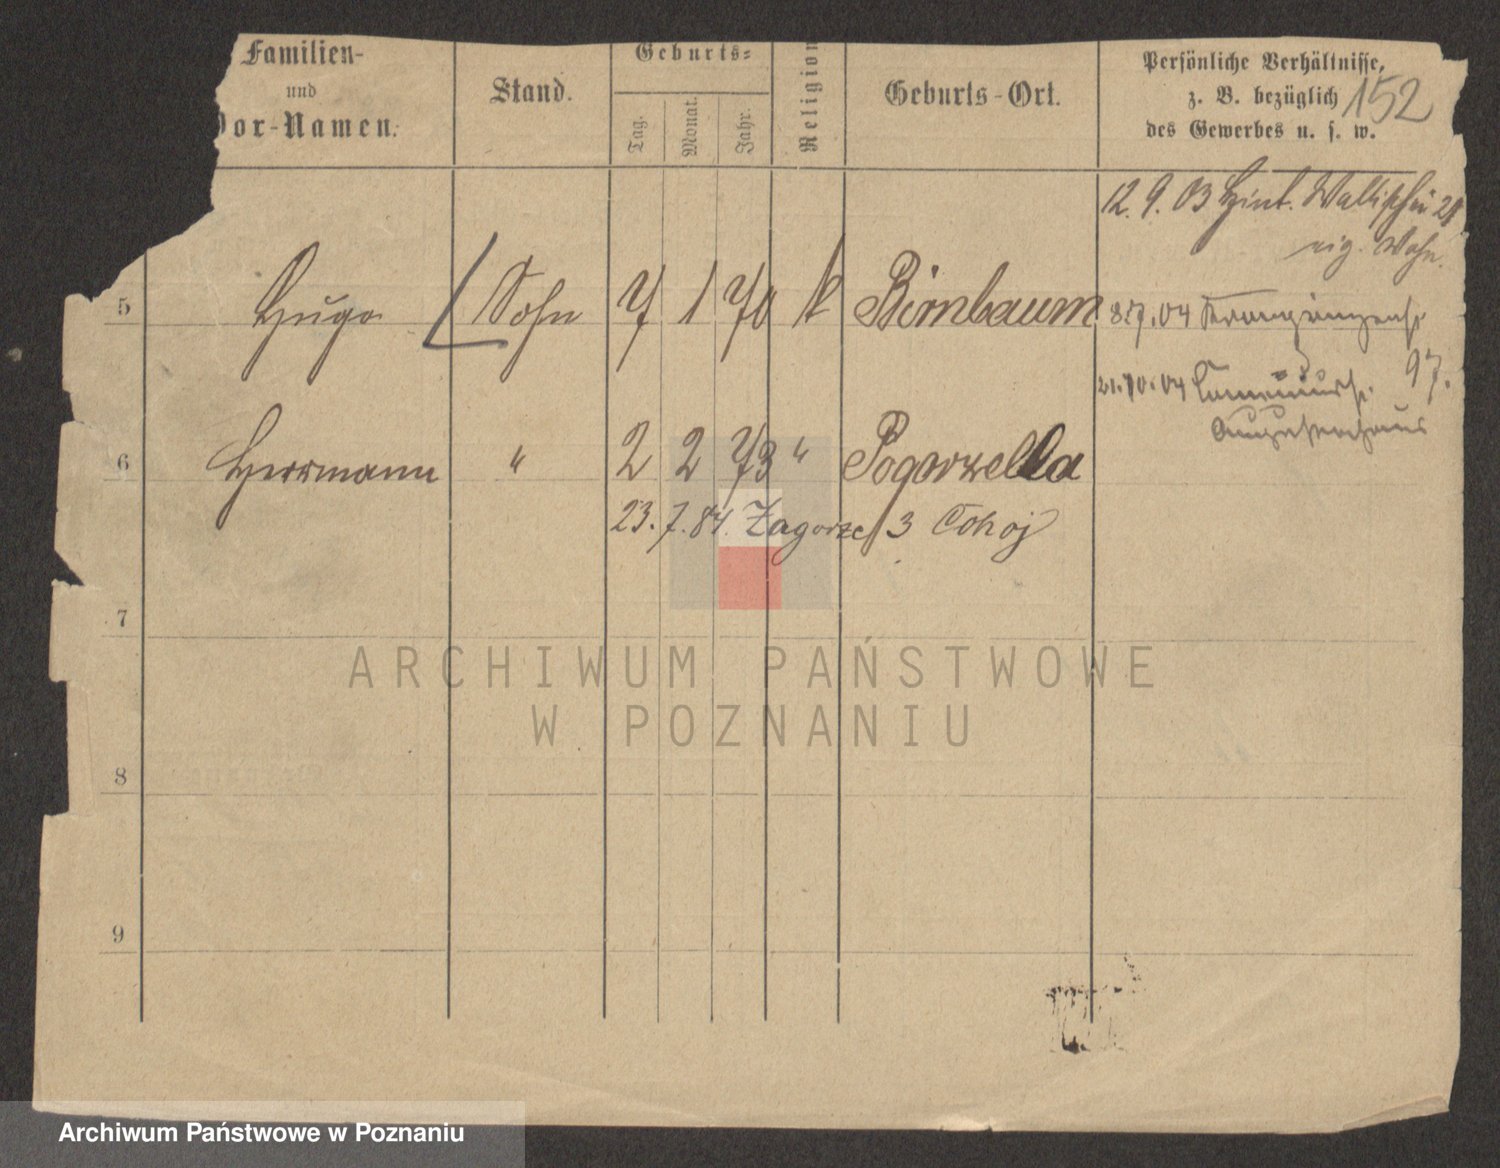 Familien-
und
Vor-Namen.
Stand.
Geburts-
Tag.
Monat.
Jahr.
Religion
Geburts-Ort.
Persönliche Verhältnisse,
z. B. bezüglich
des Gewerbes u. s. w.
152
12. 9. 03 Hint. Wallischei 21
eig. Wohn.
5 Hugo Sohn 7 1 70 k Birnbaum
8.7.04
97.
21.10.04
6 Herrmann " 2 2 73 " Pogorzella
23. 7. 84. Zagorze 3
7
8
9
ARCHIWUM PAŃSTWOWE
W POZNANIU
Archiwum Państwowe w Poznaniu